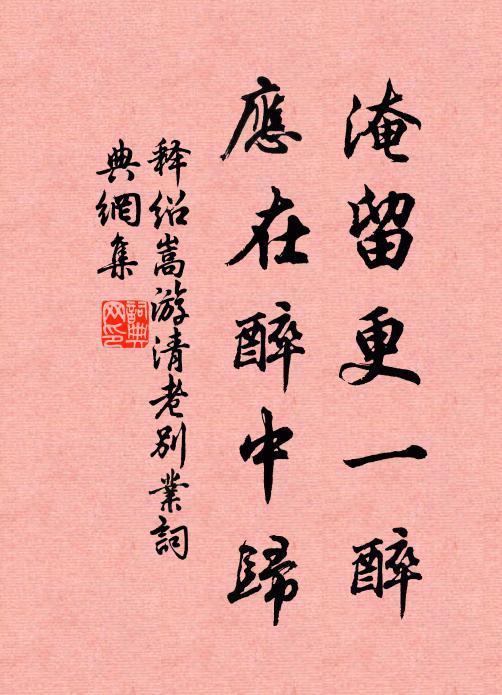 淹留更一醉
應在醉中歸
释绍嵩游清老别業詞
典網集
詞典
网印